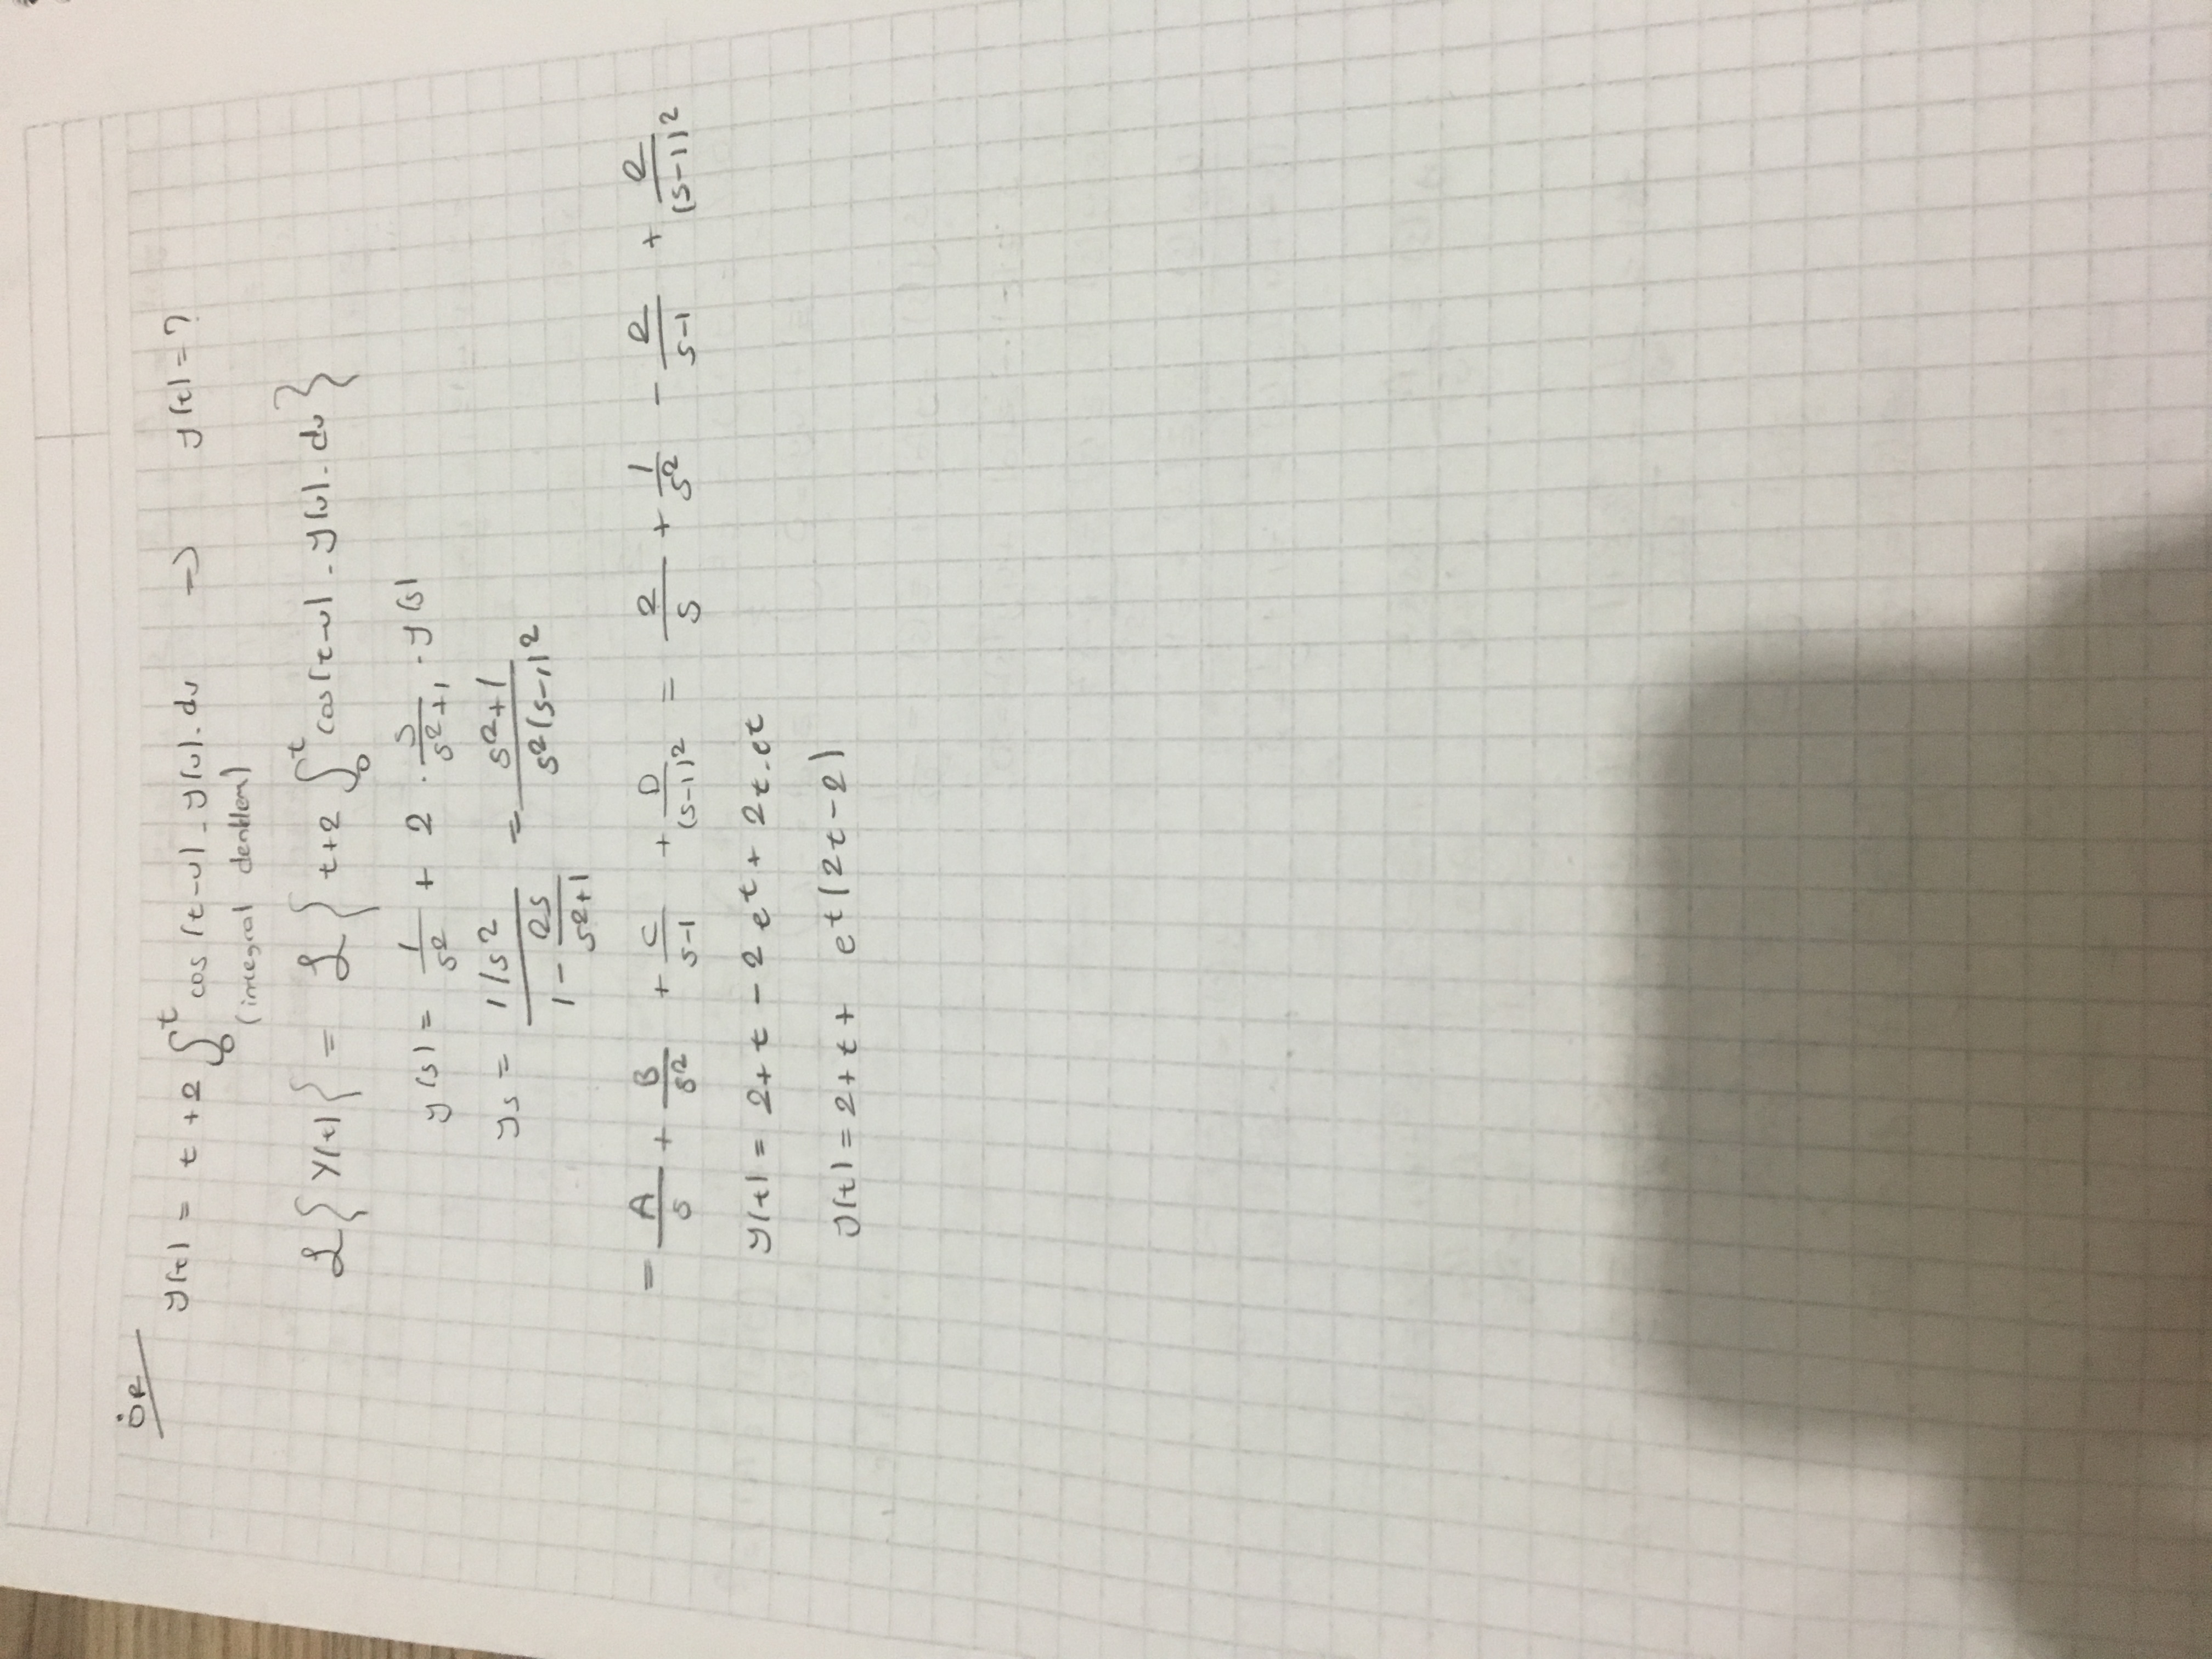 ÖR
y(t) = t + 2 ∫₀ᵗ cos(t-u) . y(u) . du => y(t) = ?
(integral denklem)
ℒ{Y(t)} = ℒ{t+2 ∫₀ᵗ cos(t-u) . y(u) . du}
y(s) = 1/s² + 2 . s/(s²+1) . y(s)
ys = (1/s²)/(1 - 2s/(s²+1)) = (s²+1)/(s²(s-1)²)
= A/s + B/s² + C/(s-1) + D/(s-1)² = 2/s + 1/s² - 2/(s-1) + 2/(s-1)²
y(t) = 2 + t - 2e^t + 2t.e^t
y(t) = 2 + t + e^t(2t-2)